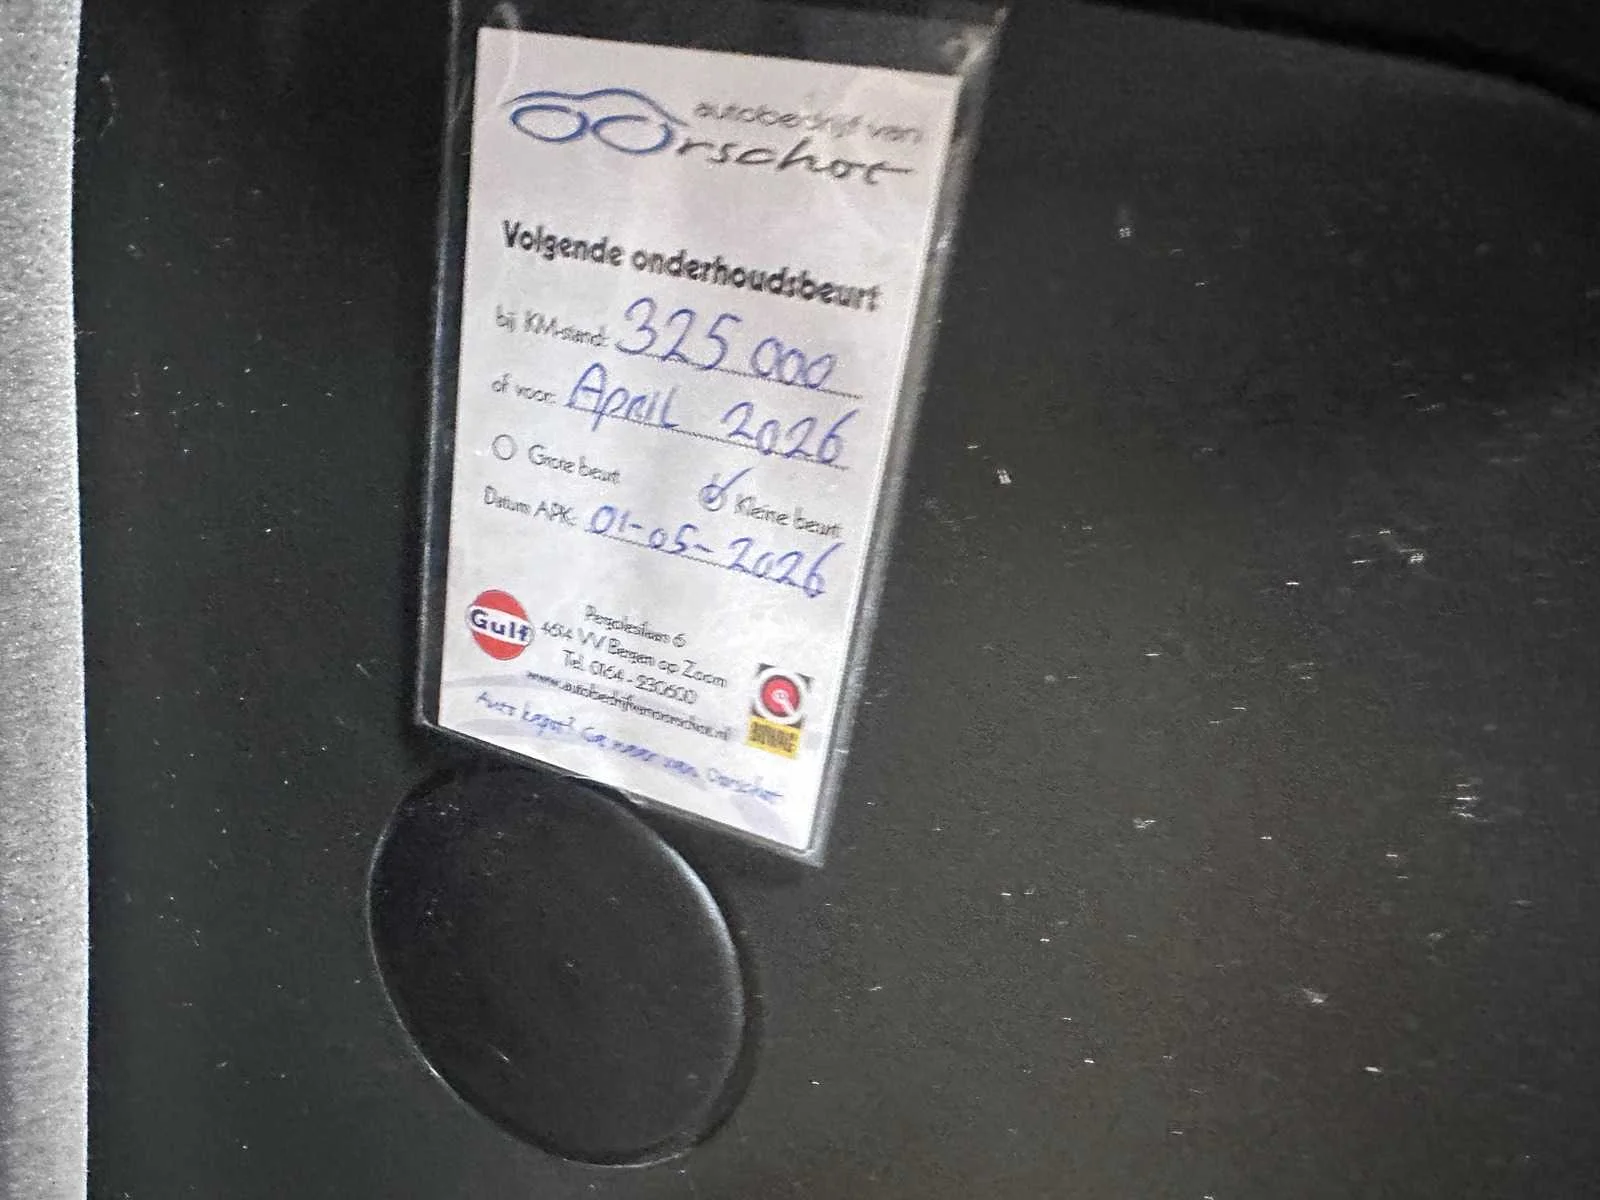 autobedrijf van
OOrschot
Volgende onderhoudsbeurt
bij KM-stand: 325 000
of voor: April 2026
Grote beurt
Kleine beurt
Datum APK: 01-05-2026
Gulf
6
VV Bergen op Zoom
Tel. 0164 - 230600
BOVAG
Auto kapot? Ga naar van Oorschot